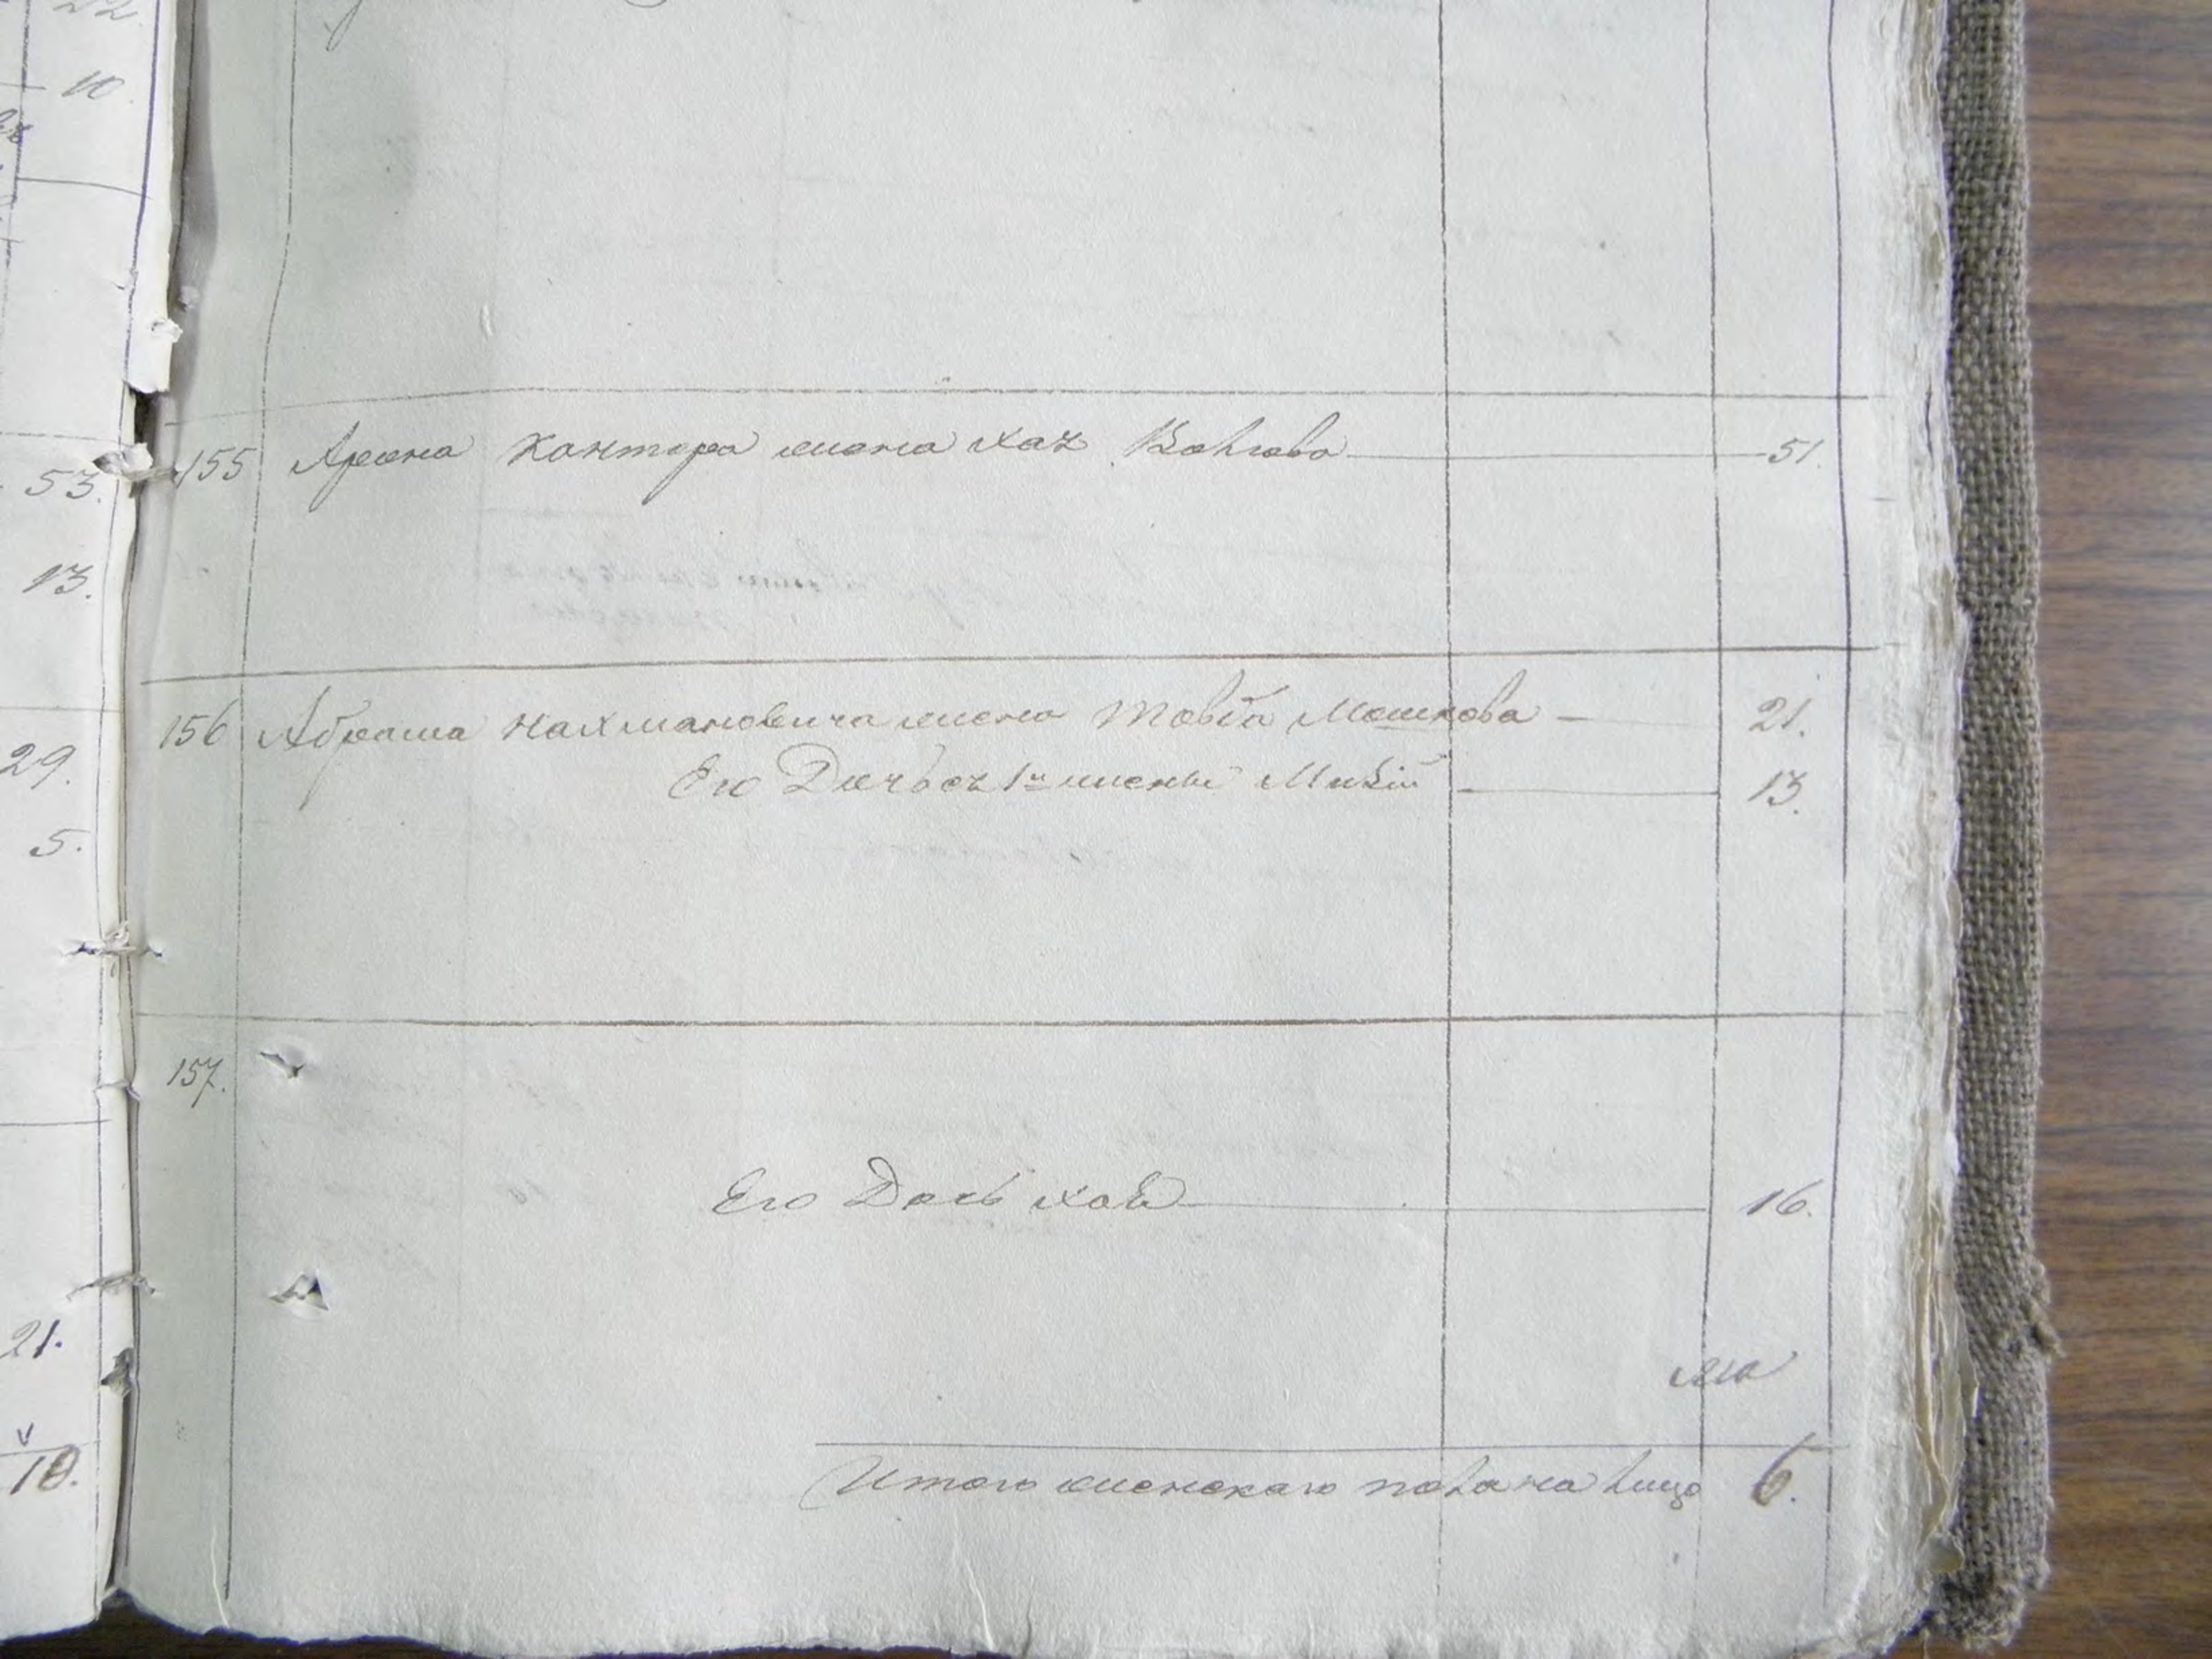 22.
10.
53.
13.
29.
5.
21.
10.
155 Арона Кантора жена Хая Волкова 51.
156 Абрама Нахмановича жена Товба Мошкова 21.
Его Дочь отъ 1й жены 13.
157.
Его Дочь Хая 16.
Итого женскаго пола на лицо 6.